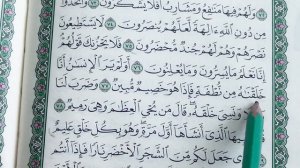 وَلَهُمْ فِيهَا مَنَافِعُ وَمَشَارِبُ أَفَلَا يَشْكُرُونَ ٧٣ وَاتَّخَذُوا
مِن دُونِ اللَّهِ آلِهَةً لَّعَلَّهُمْ يُنصَرُونَ ٧٤ لَا يَسْتَطِيعُونَ
نَصْرَهُمْ وَهُمْ لَهُمْ جُندٌ مُّحْضَرُونَ ٧٥ فَلَا يَحْزُنكَ قَوْلُهُمْ
إِنَّا نَعْلَمُ مَا يُسِرُّونَ وَمَا يُعْلِنُونَ ٧٦ أَوَلَمْ يَرَ الْإِنسَانُ أَنَّا
خَلَقْنَاهُ مِن نُّطْفَةٍ فَإِذَا هُوَ خَصِيمٌ مُّبِينٌ ٧٧ وَضَرَبَ لَنَا
وَنَسِيَ خَلْقَهُ قَالَ مَن يُحْيِي الْعِظَامَ وَهِيَ رَمِيمٌ ٧٨
الَّذِي أَنشَأَهَا أَوَّلَ مَرَّةٍ وَهُوَ بِكُلِّ خَلْقٍ عَلِيمٌ
جَعَلَ لَكُم مِّنَ الشَّجَرِ الْأَخْضَرِ نَارًا فَإِذَا أَنتُم